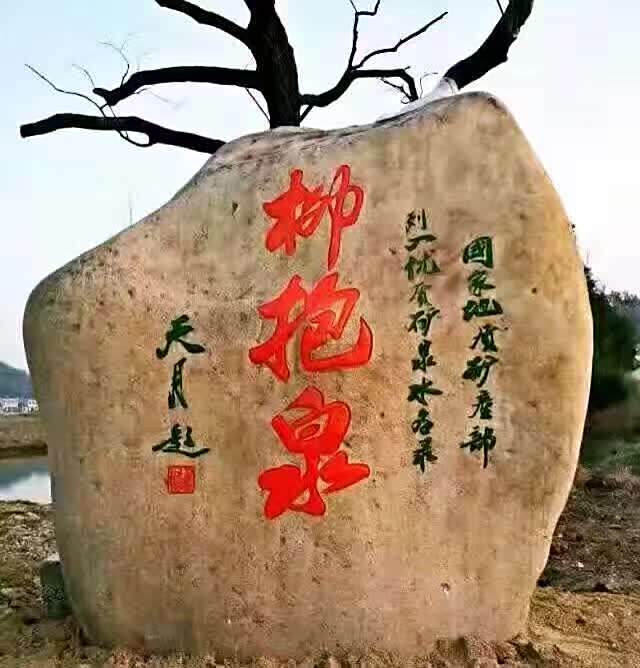 國家地质矿産部
列入优质矿泉水名录
柳抱泉
天月题